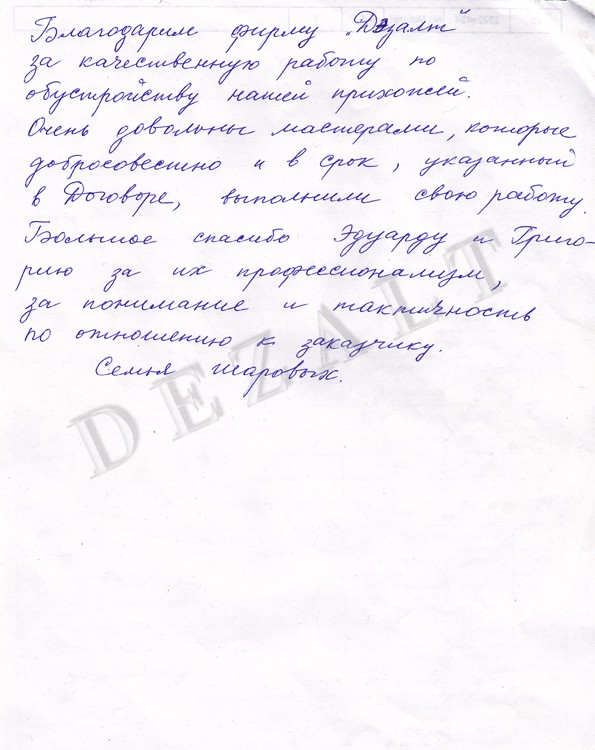 Благодарим фирму „Дезалт"
за качественную работу по
обустройству нашей прихожей.
Очень довольны мастерами, которые
добросовестно и в срок, указанный
в Договоре, выполнили свою работу.
Большое спасибо Эдуарду и Григо-
рию за их профессионализм,
за понимание и тактичность
по отношению к заказчику.
Семья Шаровых.
DEZALT